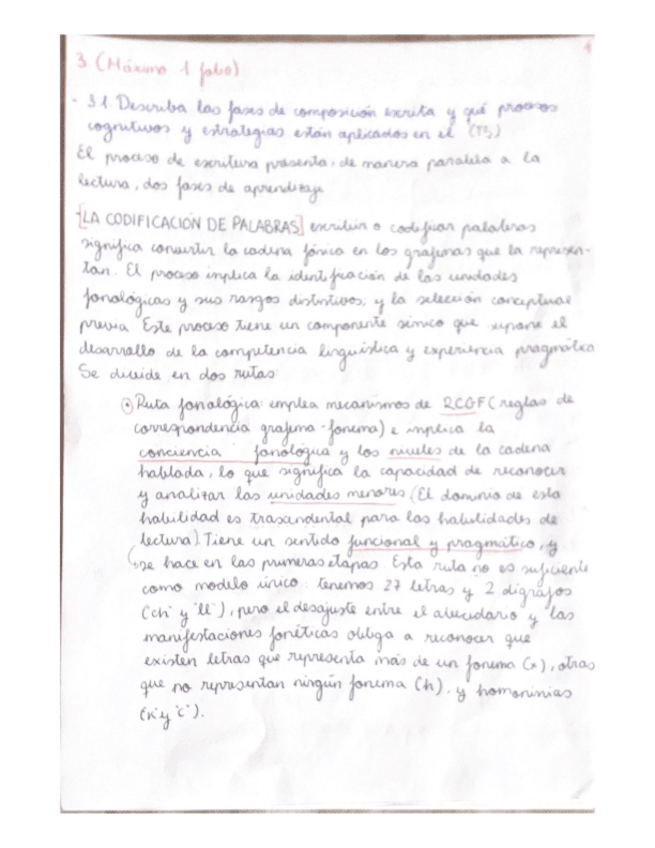 3 (Máximo 1 folio)
- 3.1. Describa las fases de composición escrita y qué procesos
cognitivos y estrategias están aplicados en él (T5)
El proceso de escritura presenta, de manera paralela a la
lectura, dos fases de aprendizaje
-[LA CODIFICACIÓN DE PALABRAS] escribir o codificar palabras
significa convertir la cadena fónica en los grafemas que la represen-
tan. El proceso implica la identificación de las unidades
fonológicas y sus rasgos distintivos, y la selección conceptual
previa. Este proceso tiene un componente sémico que supone el
desarrollo de la competencia lingüística y experiencia pragmática
Se divide en dos rutas:
• Ruta fonológica: emplea mecanismos de RCGF (reglas de
correspondencia grafema-fonema) e implica la
conciencia fonológica y los niveles de la cadena
hablada, lo que significa la capacidad de reconocer
y analizar las unidades menores (El dominio de esta
habilidad es trascendental para las habilidades de
lectura). Tiene un sentido funcional y pragmático, y
se hace en las primeras etapas. Esta ruta no es suficiente
como modelo único: tenemos 27 letras y 2 dígrafos
('ch' y 'll'), pero el desajuste entre el abecedario y las
manifestaciones fonéticas obliga a reconocer que
existen letras que representa más de un fonema (x), otras
que no representan ningún fonema (h), y homonimias
('k' y 'c').